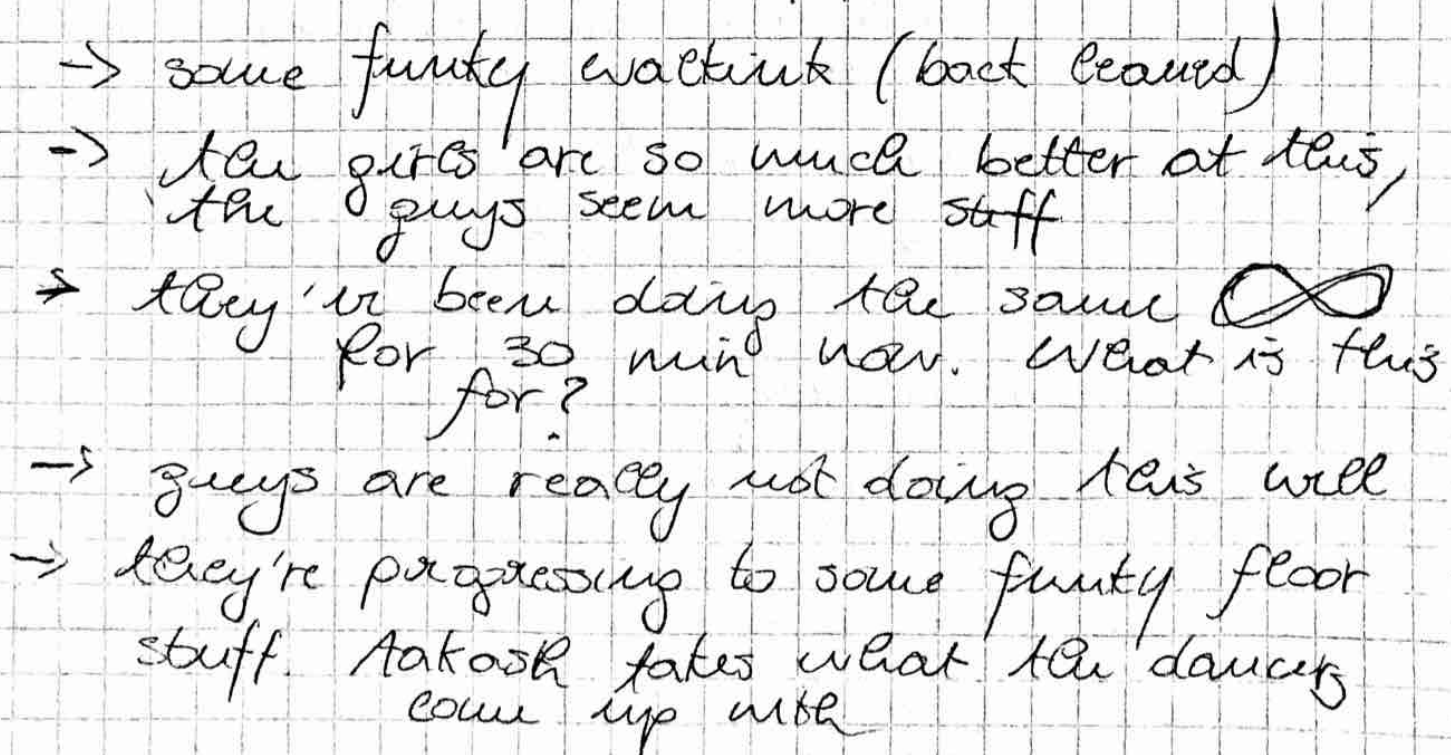 -> some funky walking (back leaned)
-> the girls are so much better at this,
the guys seem more stiff
-> they've been doing the same ∞
for 30 min now. What is this
for?
-> guys are really not doing this well
-> they're progressing to some funky floor
stuff. Aakash takes what the dancers
come up with